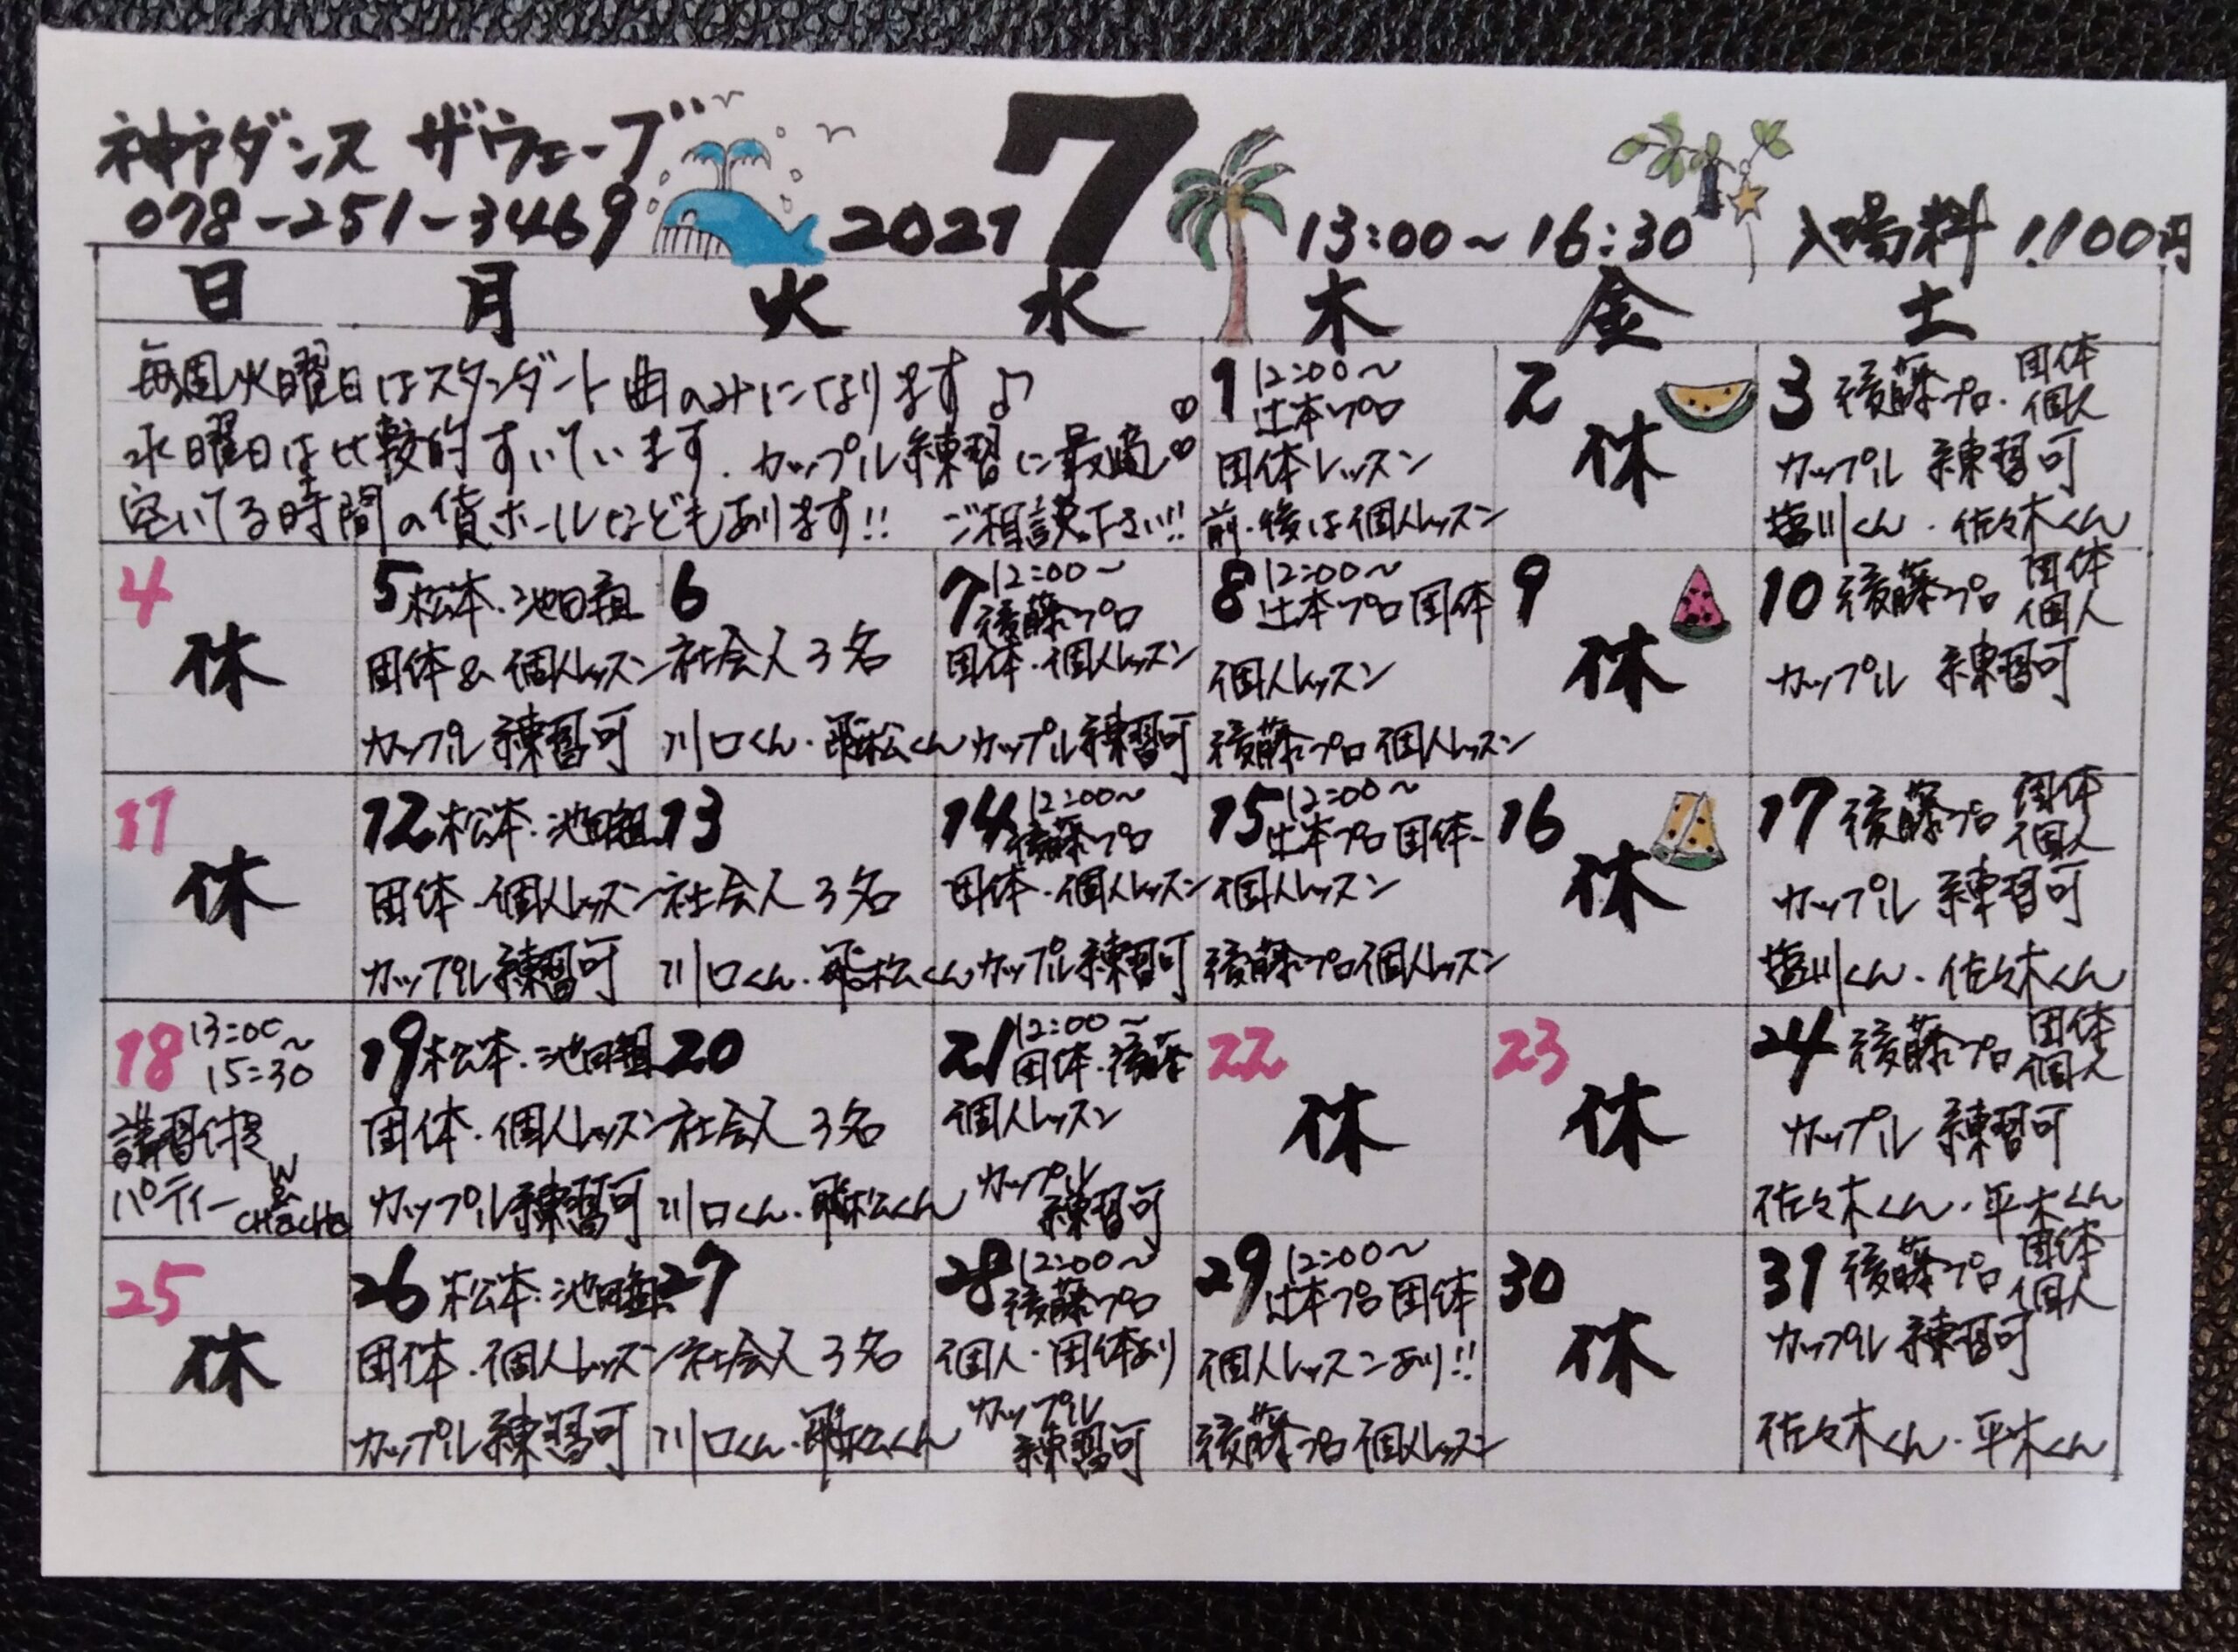 神戸ダンス ザウェーブ
078-251-3469
2021 7
13:00~16:30
入場料 1,100円
日 月 火 水 木 金 土
毎週火曜日はスタンダード曲のみになります♪
水曜日は比較的すいています。カップル練習に最適♡♡
空いてる時間の貸ホールなどもあります!! ご相談下さい!!
1 12:00~
辻本プロ
団体レッスン
前・後は個人レッスン
2
休
3 後藤プロ・団体
個人
カップル 練習可
塩川くん・佐々木くん
4
休
5 松本・池田組
団体 & 個人レッスン
カップル 練習可
6
社会人 3名
川口くん・飛松くん
7 12:00~
後藤プロ
団体・個人レッスン
カップル練習可
8 12:00~
辻本プロ 団体
個人レッスン
後藤プロ 個人レッスン
9
休
10 後藤プロ 団体
個人
カップル 練習可
11
休
12 松本・池田組
団体・個人レッスン
カップル練習可
13
社会人 3名
川口くん・飛松くん
14 12:00~
後藤プロ
団体・個人レッスン
カップル練習可
15 12:00~
辻本プロ 団体・
個人レッスン
後藤プロ個人レッスン
16
休
17 後藤プロ 団体
個人
カップル 練習可
塩川くん・佐々木くん
18 13:00~
15:30
講習付き
パーティー W
&
CHaCHa
19 松本・池田組
団体・個人レッスン
カップル練習可
20
社会人 3名
川口くん・飛松くん
21 12:00~
団体・後藤
個人レッスン
カップル
練習可
22
休
23
休
24 後藤プロ 団体
個人
カップル 練習可
佐々木くん・平木くん
25
休
26 松本・池田組
団体・個人レッスン
カップル 練習可
27
社会人 3名
川口くん・飛松くん
28 12:00~
後藤プロ
個人・団体あり
カップル
練習可
29 12:00~
辻本プロ 団体
個人レッスンあり!!
後藤プロ 個人レッスン
30
休
31 後藤プロ 団体
個人
カップル 練習可
佐々木くん・平木くん